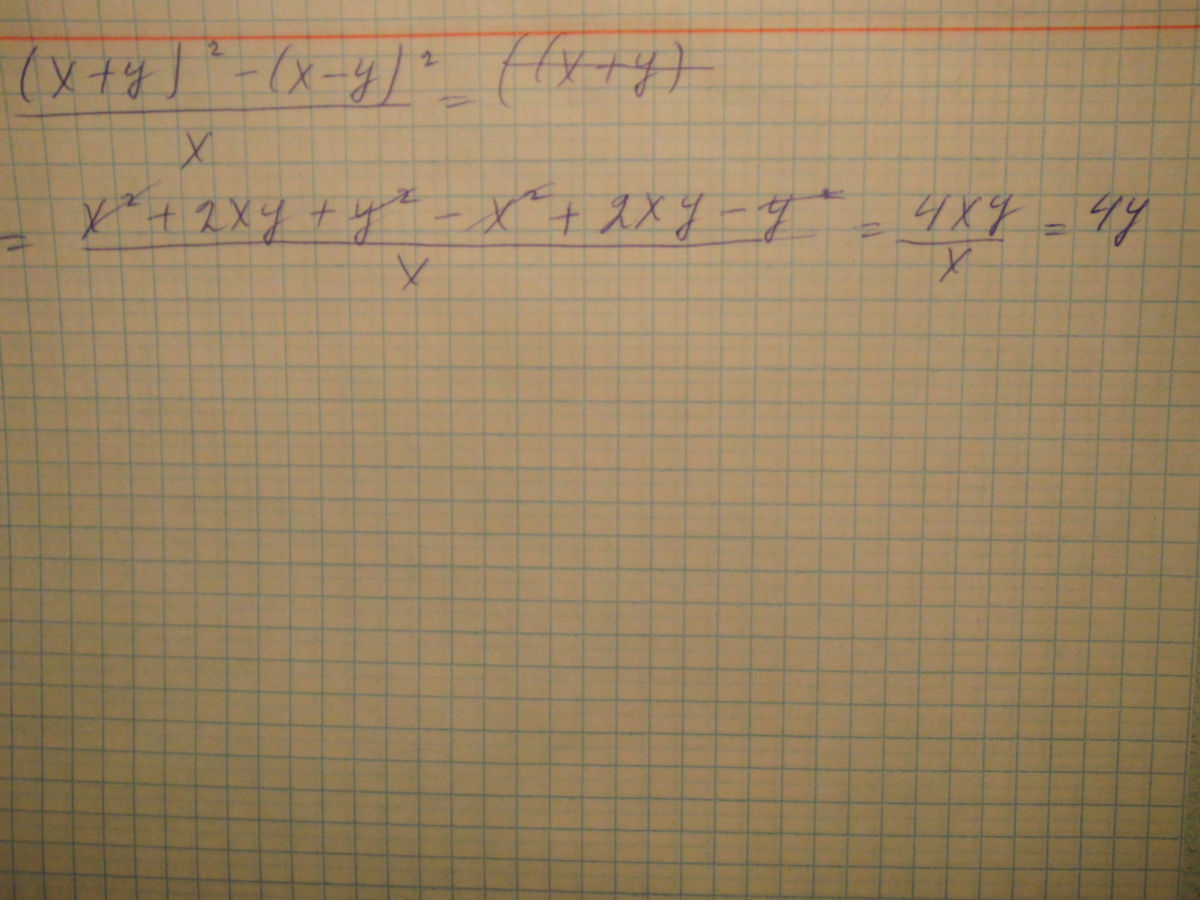 (x+y)² - (x-y)² / x = ((x+y)
= x² + 2xy + y² - x² + 2xy - y² / x = 4xy / x = 4y